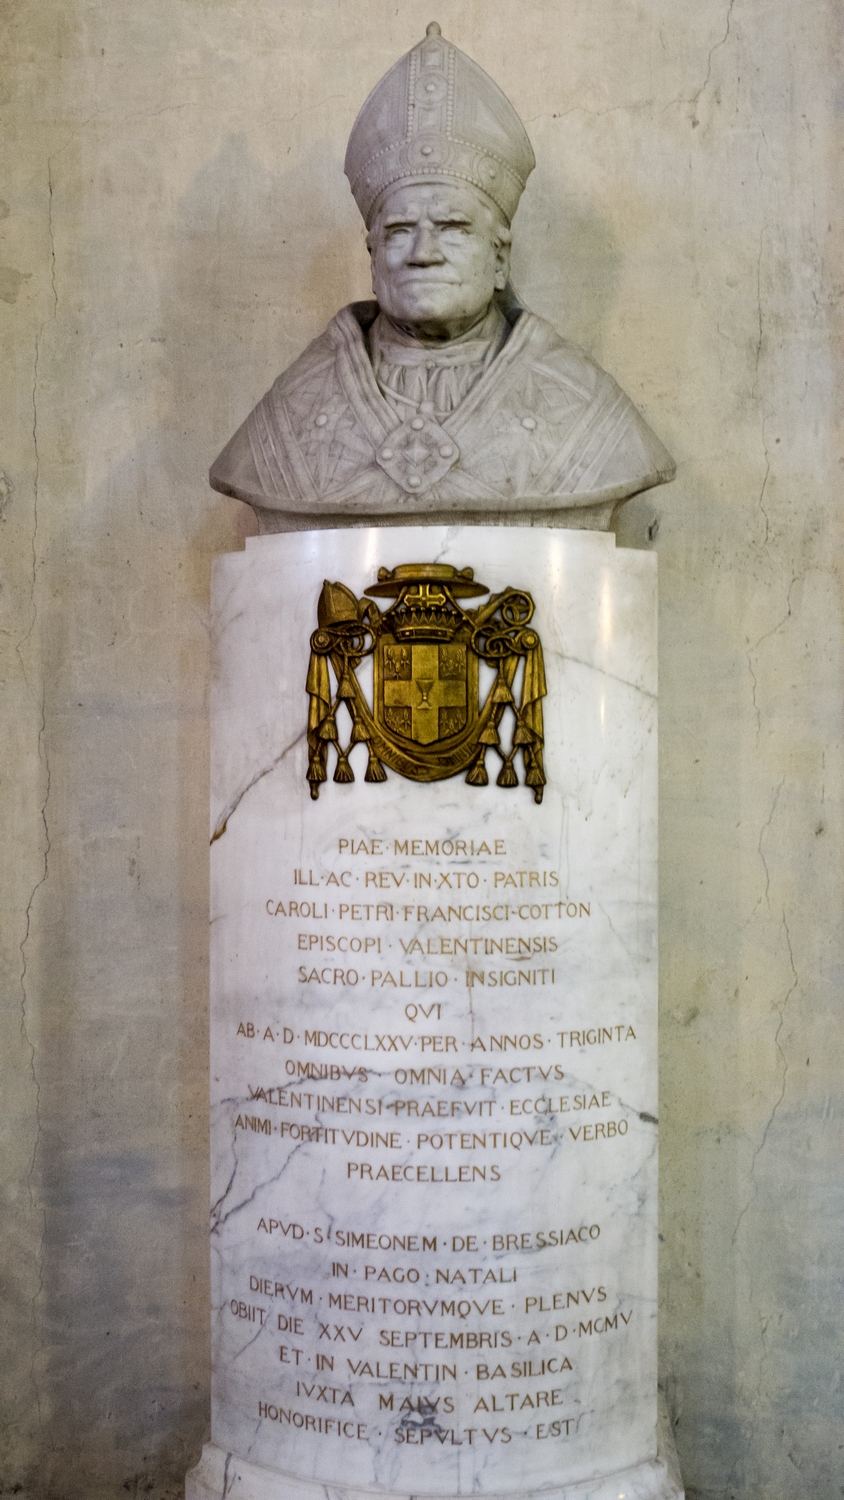 PIAE · MEMORIAE
ILL · AC · REV · IN · XTO · PATRIS
CAROLI · PETRI · FRANCISCI - COTTON
EPISCOPI · VALENTINENSIS
SACRO · PALLIO · INSIGNITI
QVI
AB · A · D · MDCCCLXXV · PER · ANNOS · TRIGINTA
OMNIBVS · OMNIA · FACTVS
VALENTINENSI · PRAEFVIT · ECCLESIAE
ANIMI · FORTITVDINE · POTENTIQVE · VERBO
PRAECELLENS
APVD · S · SIMEONEM · DE · BRESSIACO
IN · PAGO · NATALI
DIERVM · MERITORVMQVE · PLENVS
OBIIT DIE XXV SEPTEMBRIS · A · D · MCMV
ET · IN VALENTIN · BASILICA
IVXTA MAIVS ALTARE
HONORIFICE · SEPVLTVS · EST